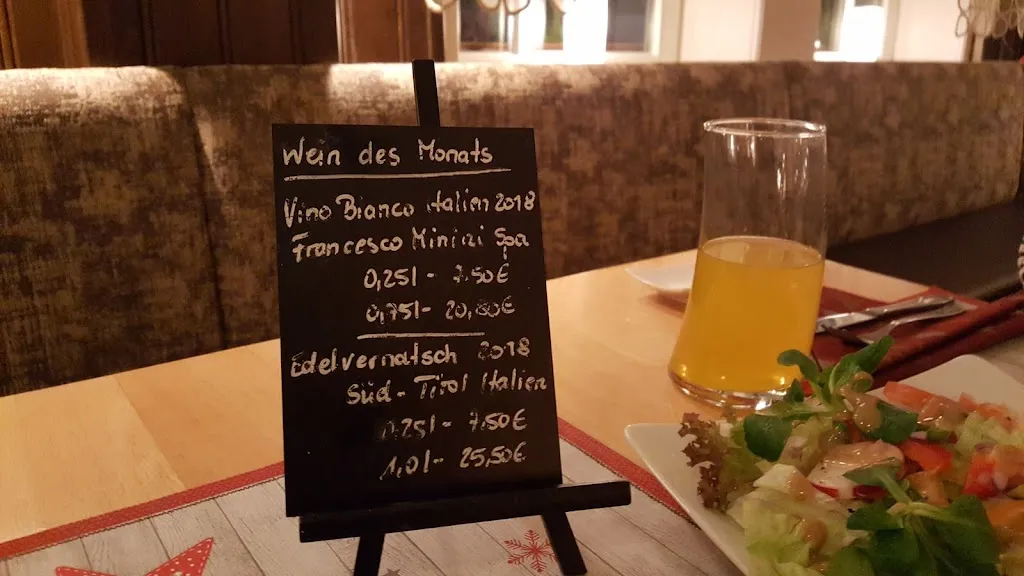 Wein des Monats
Vino Bianco Italien 2018
Francesco Minini Spa
0,25l - 7.50€
0,75l - 20,80€
Edelvernatsch 2018
Süd - Tirol Italien
0,25l - 7,50€
1,0l - 25,50€